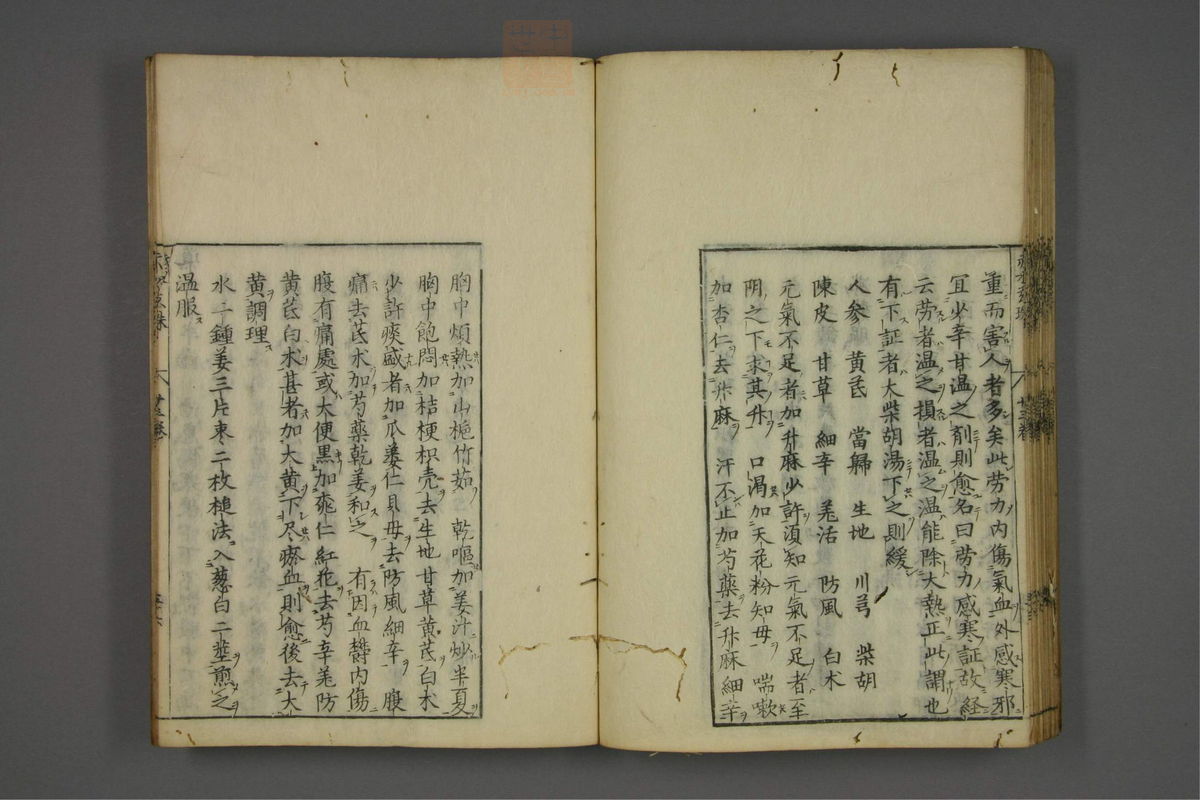 重而害人者多矣此労力内傷氣血外感寒邪
宜必辛甘温之剤則愈名曰労力感寒証故経
云労者温之損者温之温能除大熱正此謂也
有下証者大柴胡湯下之則緩
人參 黄芪 當歸 生地 川芎 柴胡
陳皮 甘草 細辛 羌活 防風 白朮
元氣不足者加升麻少許須知元氣不足者至
阴之下求其升 口渇加天花粉知母 喘嗽
加杏仁去升麻 汗不止加芍薬去升麻細辛
胸中煩熱加山梔竹茹 乾嘔加姜汁炒半夏
胸中飽悶加桔梗枳壳去生地甘草黄芪白朮
少許痰盛者加瓜蔞仁貝母去防風細辛 腹
痛去芪朮加芍薬乾姜和之 有因血欝内傷
腹有痛處或大便黒加桃仁紅花去芍辛羌防
黄芪白朮甚者加大黄下尽瘀血則愈後去大
黄調理
水二鍾姜三片枣二枚槌法入葱白二莖煎之
温服